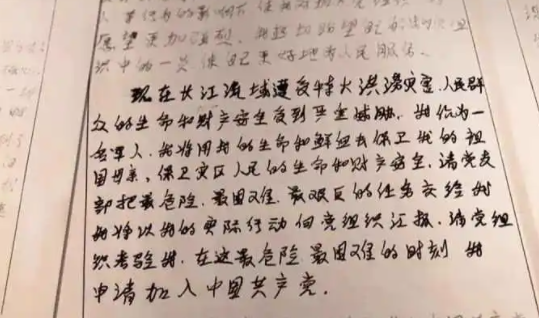 愿望更加强烈，我迫切盼望能成为党组
织中的一员，使自己更好地为人民服务。
现在长江流域遭受特大洪涝灾害，人民群
众的生命和财产安全受到严重威胁，我作为一
名军人，我将用我的生命和鲜血去保卫我的祖
国母亲，保卫灾区人民的生命和财产安全，请党支
部把最危险、最困难、最艰巨的任务交给我
我将以我的实际行动向党组织汇报，请党组
织考验我，在这最危险最困难的时刻 我
申请加入中国共产党。